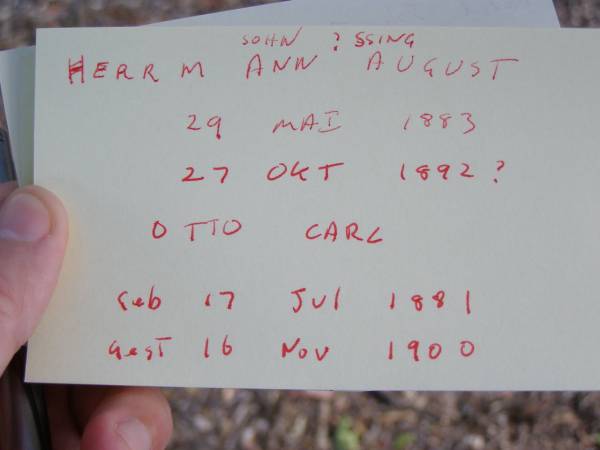 SOHN ? SSING
HERRM ANN AUGUST
29 MAI 1883
27 OKT 1892 ?
OTTO CARL
Geb 17 Jul 1881
Gest 16 Nov 1900